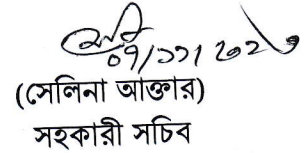 ০৭/১১/২০২৩
(সেলিনা আক্তার)
সহকারী সচিব